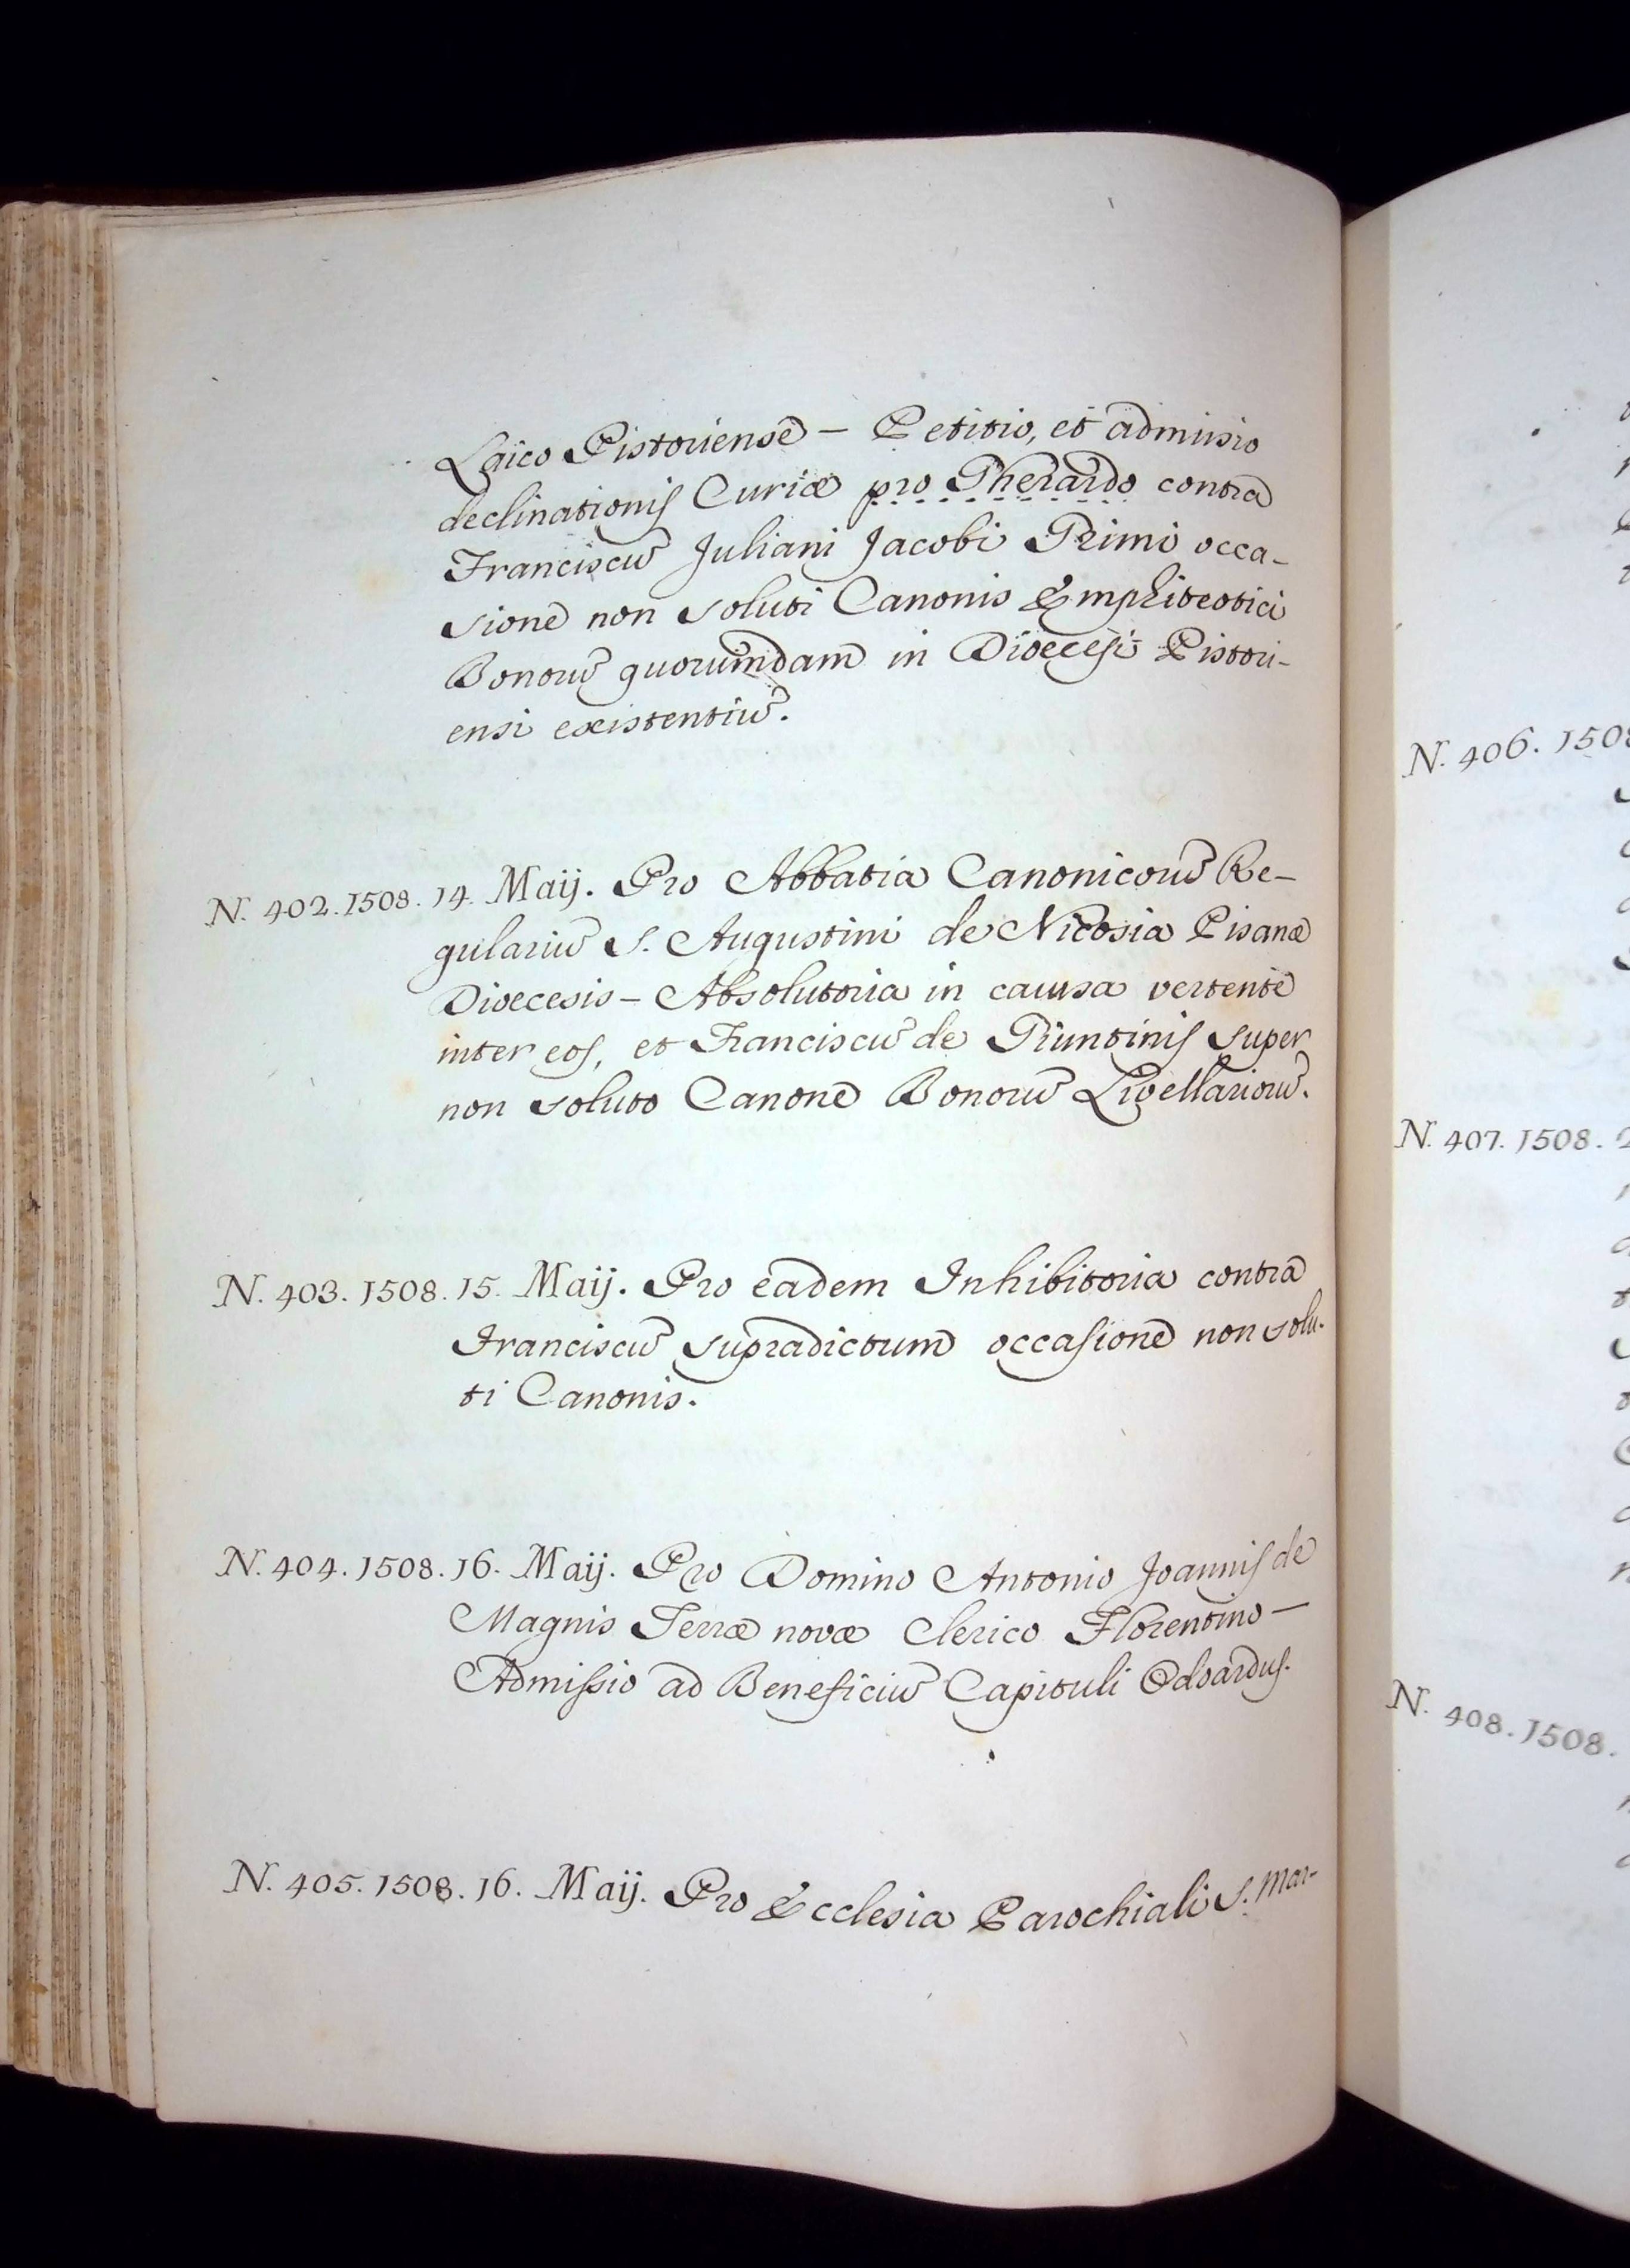 Laico Pistoriense – Petitio, et admisio
declinationis Curiæ pro Gherardo contra
Franciscū Juliani Jacobi Grimi occa-
sione non soluti Canonis Emphiteotici
Bonorū quorumdam in Dioecesi Pistori-
ensi existentiū.
N. 402. 1508. 14. Maij. Pro Abbatia Canonicorū Re-
gulariū S. Augustini de Nicosia Pisanæ
Dioecesis – Absolutoria in causa vertente
inter eos, et Franciscū de Giuntinis super
non soluto Canone Bonorū Livellariorū.
N. 403. 1508. 15. Maij. Pro eadem Inhibitoria contra
Franciscū supradictum occasione non solu-
ti Canonis.
N. 404. 1508. 16. Maij. Pro Domino Antonio Joannis de
Magnis Terræ novæ Clerico Florentino –
Admissio ad Beneficiū Capituli Odoardus.
N. 405. 1508. 16. Maij. Pro Ecclesia Parochiali S. Mar-
N. 406. 1508
N. 407. 1508.
N. 408. 1508.